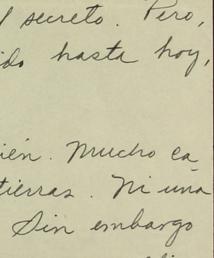 l secreto. Pero,
ido hasta hoy,
ién. Mucho ca-
tierras. Ni una
Sin embargo